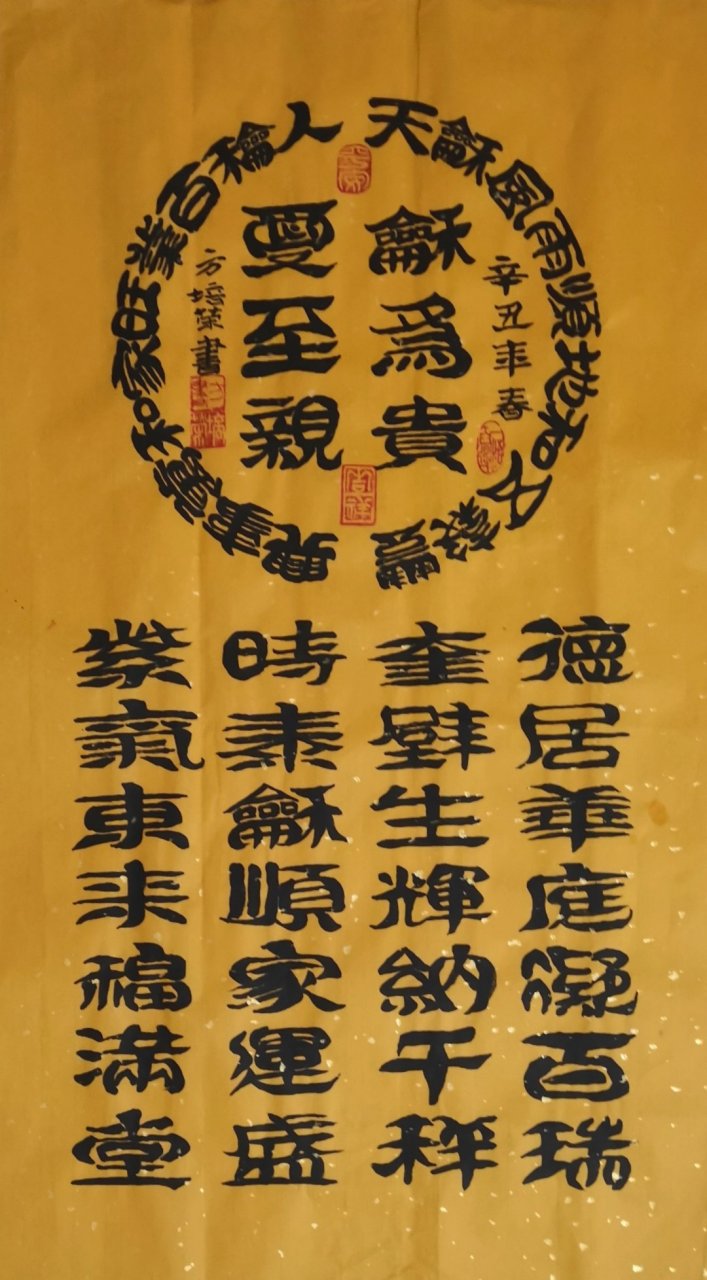 天龢風雨順地和五穀豐
人龢百業旺家和萬事興
辛丑年春
龢為貴
愛至親
方培榮書
平安
吉祥
德居華庭凝百瑞
奎壁生輝納千祥
時泰龢順家運盛
紫氣東来福滿堂